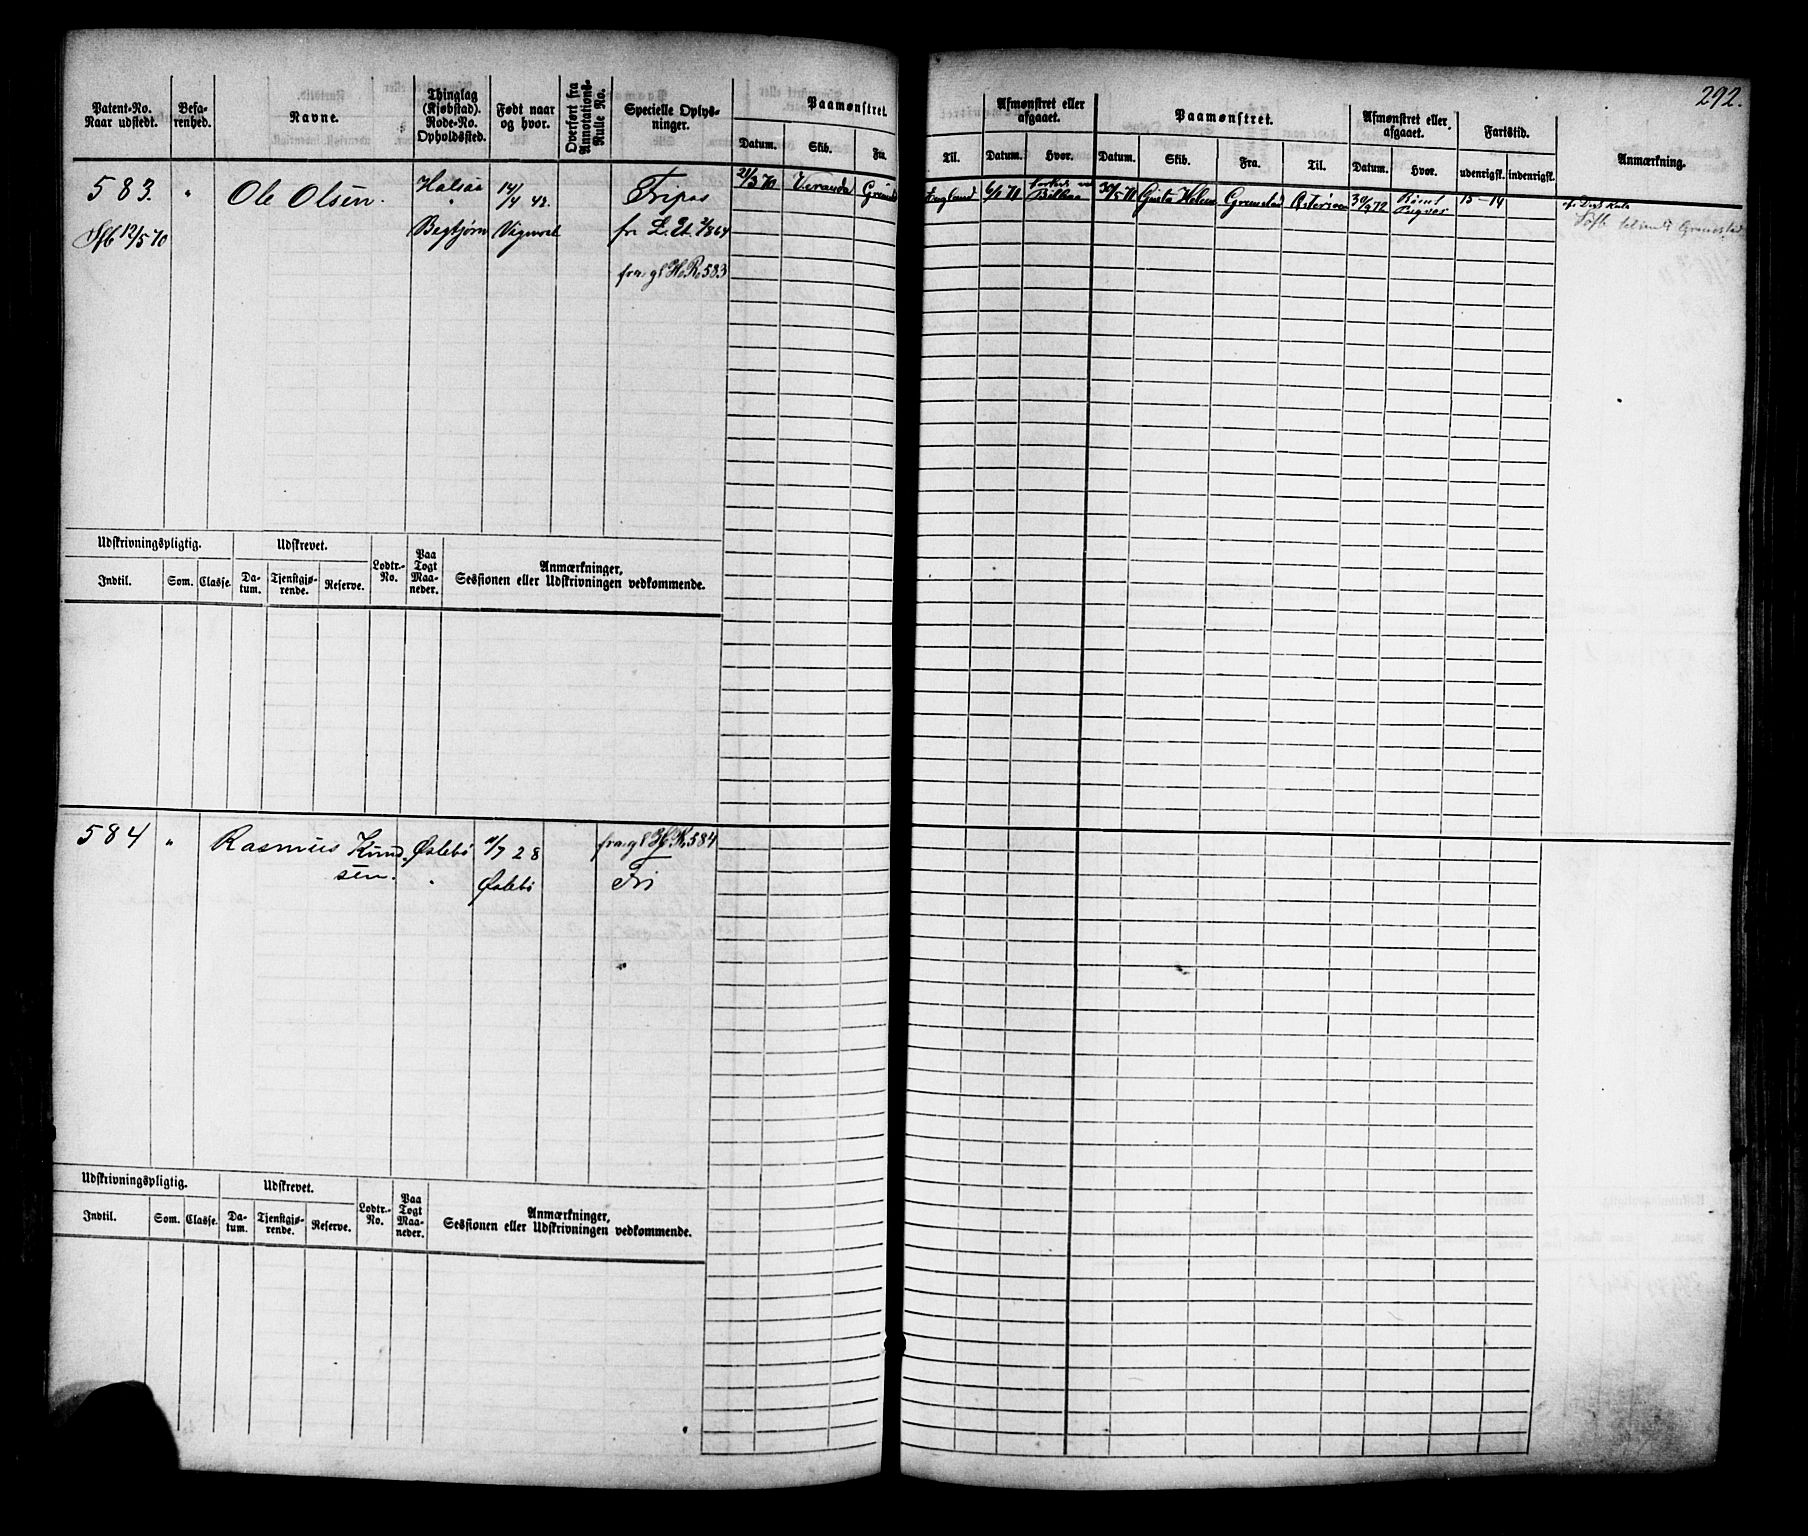 292.
Patent-No. Naar udstedt.
Befarenhed.
Navne.
Thinglag (Kjøbstad). Rode-No. Opholdssted.
Født naar og hvor.
Overført fra Annotations-Rulle No.
Specielle Oplysninger.
Paamønstret.
Datum. Skib. Fra.
Til.
Afmønstret eller afgaaet.
Datum. Hvor.
Paamønstret.
Datum. Skib. Fra. Til.
Afmønstret eller afgaaet.
Datum. Hvor.
Fartstid.
udenrigsk. indenrigsk.
Anmærkning.
583. " Ole Olsen. Halsaa 14/4 43. Fripas 21/3 70 Veranda England 6/1 71 30/5 71 Gusta Helene Grimstad 30/9 72 15-14
Sfb 12/5 70 " Begbjørn Vigmost fri L. Et. 7/8 64
fra gl H. R. 583
Udskrivningspligtig. Udskrevet. Lodtr.-No. Paa Togt Maaneder. Anmærkninger, Sessionen eller Udskrivningen vedkommende.
Indtil. Som. Classe. Datum. Tjenstgjørende. Reserve.
584 " Rasmus Knud- Øslebø 11/7 28 fra gl H. R. 584
sen. " Øslebø Fri
Udskrivningspligtig. Udskrevet. Lodtr.-No. Paa Togt Maaneder. Anmærkninger, Sessionen eller Udskrivningen vedkommende.
Indtil. Som. Classe. Datum. Tjenstgjørende. Reserve.